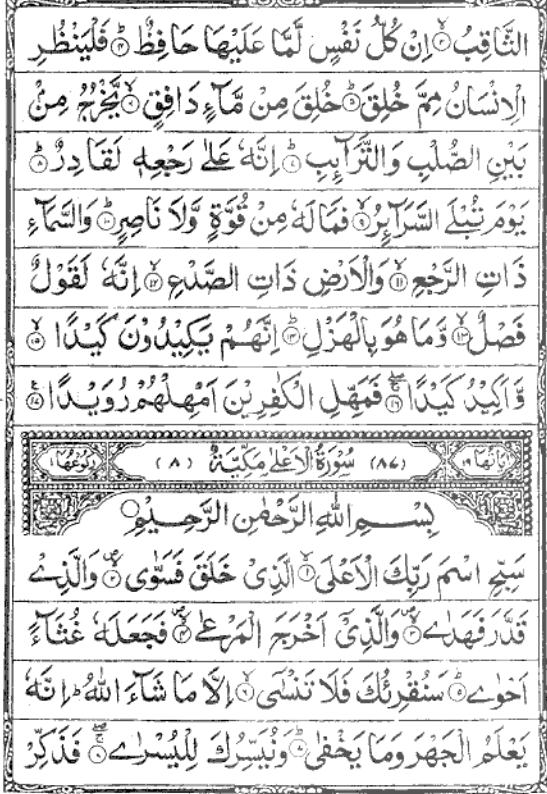 الثَّاقِبُ ۙ﴿۳﴾ اِنْ كُلُّ نَفْسٍ لَّمَّا عَلَيْهَا حَافِظٌ ؕ﴿۴﴾ فَلْيَنْظُرِ
الْاِنْسَانُ مِمَّ خُلِقَ ؕ﴿۵﴾ خُلِقَ مِنْ مَّآءٍ دَافِقٍ ۙ﴿۶﴾ يَّخْرُجُ مِنْۢ
بَيْنِ الصُّلْبِ وَالتَّرَآئِبِ ؕ﴿۷﴾ اِنَّهٗ عَلٰى رَجْعِهٖ لَقَادِرٌ ؕ﴿۸﴾
يَوْمَ تُبْلَى السَّرَآئِرُ ۙ﴿۹﴾ فَمَا لَهٗ مِنْ قُوَّةٍ وَّلَا نَاصِرٍ ؕ﴿۱۰﴾ وَالسَّمَآءِ
ذَاتِ الرَّجْعِ ۙ﴿۱۱﴾ وَالْاَرْضِ ذَاتِ الصَّدْعِ ۙ﴿۱۲﴾ اِنَّهٗ لَقَوْلٌ
فَصْلٌ ۙ﴿۱۳﴾ وَّمَا هُوَ بِالْهَزْلِ ؕ﴿۱۴﴾ اِنَّهُمْ يَكِيْدُوْنَ كَيْدًا ۙ﴿۱۵﴾
وَّاَكِيْدُ كَيْدًا ۚۖ﴿۱۶﴾ فَمَهِّلِ الْكٰفِرِيْنَ اَمْهِلْهُمْ رُوَيْدًا ﴿۱۷﴾
اٰيَاتُهَا ۱۹ (۸۷) سُوْرَةُ الْاَعْلٰى مَكِّيَّةٌ (۸) رُكُوْعُهَا ۱
بِسْمِ اللّٰهِ الرَّحْمٰنِ الرَّحِيْمِ
سَبِّحِ اسْمَ رَبِّكَ الْاَعْلَى ۙ﴿۱﴾ الَّذِىْ خَلَقَ فَسَوّٰى ۪ۙ﴿۲﴾ وَالَّذِىْ
قَدَّرَ فَهَدٰى ۪ۙ﴿۳﴾ وَالَّذِىْۤ اَخْرَجَ الْمَرْعٰى ۪ۙ﴿۴﴾ فَجَعَلَهٗ غُثَآءً
اَحْوٰى ؕ﴿۵﴾ سَنُقْرِئُكَ فَلَا تَنْسٰٓى ۙ﴿۶﴾ اِلَّا مَا شَآءَ اللّٰهُ ؕ اِنَّهٗ
يَعْلَمُ الْجَهْرَ وَمَا يَخْفٰى ؕ﴿۷﴾ وَنُيَسِّرُكَ لِلْيُسْرٰى ۚۖ﴿۸﴾ فَذَكِّرْ